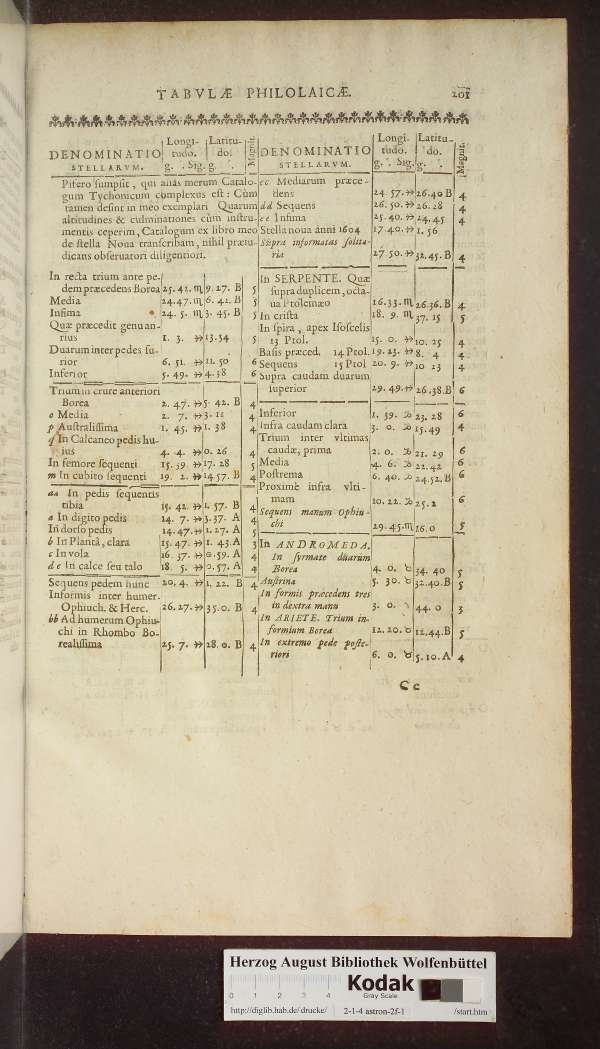 TABVLÆ PHILOLAICÆ. 201
DENOMINATIO STELLARVM. Longitudo. g. ′. Sig. Latitudo. g. ′. Magnit.
Pistero sumpsit, qui alias merum Catalo-
gum Tychonicum complexus est: Cùm
tamen desint in meo exemplari Quarum
altitudines & culminationes cùm instru-
mentis ceperim, Catalogum ex libro meo
de stella Nova transcribam, nihil prætu-
dicans observatori diligentiori.
In recta trium ante pe-
dem præcedens Borea 25. 42. ♏ 9. 27. B 5
Media 24. 47. ♏ 6. 42. B 5
Infima 24. 5. ♏ 3. 45. B 5
Quæ præcedit genu an-
rius 1. 3. ♐ 13. 34 5
Duarum inter pedes su-
rior 6. 51. ♐ 11. 50 6
Inferior 5. 49. ♐ 4. 38 6
Trium in crure anteriori
Borea 2. 47. ♐ 5. 42. B 4
o Media 2. 7. ♐ 3. 11 4
p Australissima 1. 45. ♐ 1. 38 4
q In Calcaneo pedis hu-
ius 4. 4. ♐ 0. 26 4
In femore sequenti 15. 39. ♐ 17. 28 5
m In cubito sequenti 19. 2. ♐ 14. 57. B 4
aa In pedis sequentis
tibia 15. 42. ♐ 1. 57. B 4
a In digito pedis 14. 7. ♐ 3. 37. A 4
In dorso pedis 14. 47. ♐ 1. 27. A 5
b In Plantâ, clara 15. 47. ♐ 1. 43. A 3
c In vola 16. 37. ♐ 0. 59. A 4
d e In calce seu talo 18. 5. ♐ 0. 57. A 4
Sequens pedem hunc 20. 4. ♐ 1. 22. B 4
Informis inter humer.
Ophiuch. & Herc. 26. 27. ♐ 35. 0. B 4
bb Ad humerum Ophiu-
chi in Rhombo Bo-
realissima 25. 7. ♐ 28. 0. B 4
DENOMINATIO STELLARVM. Longitudo. g. ′. Sig. Latitudo. g. ′. Magnit.
cc Mediarum præce-
dens 24. 57. ♐ 26. 40 B 4
dd Sequens 26. 50. ♐ 26. 28 4
ee Infima 25. 40. ♐ 24. 45 4
Stella nova anni 1604 17. 40. ♐ 1. 56
Supra informatas solita-
ria 27. 50. ♐ 32. 45. B 4
In SERPENTE. Quæ
supra duplicem, octa-
va Ptolemæo 16. 33. ♏ 26. 36. B 4
In crista 18. 9. ♏ 37. 15 5
In spira, apex Isoscelis
13 Ptol. 15. 0. ♐ 10. 25 4
Basis præced. 14 Ptol. 19. 23. ♐ 8. 4 4
Sequens 15 Ptol 20. 9. ♐ 10 23 4
Supra caudam duarum
superior 29. 49. ♐ 26. 38. B 6
Inferior 1. 59. ♑ 23. 28 6
Infra caudam clara 3. 0. ♑ 15. 49 4
Trium inter vltimas
caudæ, prima 2. 0. ♑ 21. 29 6
Media 4. 6. ♑ 22. 42 6
Postrema 6. 40. ♑ 24. 52. B 6
Proximè infra vlti-
mam 10. 22. ♑ 25. 2 6
Sequens manum Ophiu-
chi 29. 45. ♏ 16. 0 5
In ANDROMEDA.
In syrmate duarum
Borea 4. 0. ♉ 34. 40 5
Austrina 5. 30. ♉ 32. 40. B 5
In formis præcedens tres
in dextra manu 3. 0. 44. 0 3
In ARIETE. Trium in-
formium Borea 12. 20. ♉ 12. 44. B 5
In extremo pede poste-
riori 6. 0. ♉ 5. 10. A 4
Cc
Herzog August Bibliothek Wolfenbüttel
0 1 2 3 4
Kodak
Gray Scale
http://diglib.hab.de/drucke/ 2-1-4 astron-2f-1 /start.htm